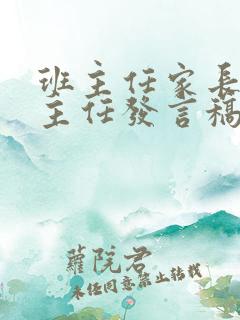 班主任家長
主任發言稿
蘿院君
未任同意禁止转载